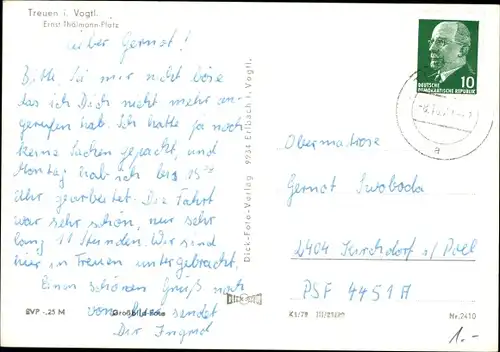 Treuen i. Vogtl.
Ernst-Thälmann-Platz
Lieber Gernot!
Bitte sei mir nicht böse
das ich Dich nicht mehr an-
gerufen hab. Ich hatte ja noch
keine Sachen gepackt, und
Montag hab ich bis 15
Uhr gearbeitet. Die Fahrt
war sehr schön, nur sehr
lang 11 Stunden. Wir sind
hier in Treuen untergebracht,
Einen schönen Gruß noch
von sendet
Dir Ingrid
EVP -.25 M
Großbild-Foto
Dick-Foto-Verlag 9934 Erlbach i. Vogtl.
DICK
10
DEUTSCHE
DEMOKRATISCHE REPUBLIK
a
Obermatrose
Gernot Swoboda
2404 Kirchdorf a/Poel
PSF 4451 A
K1/79 III/26/
Nr. 2410
1.-